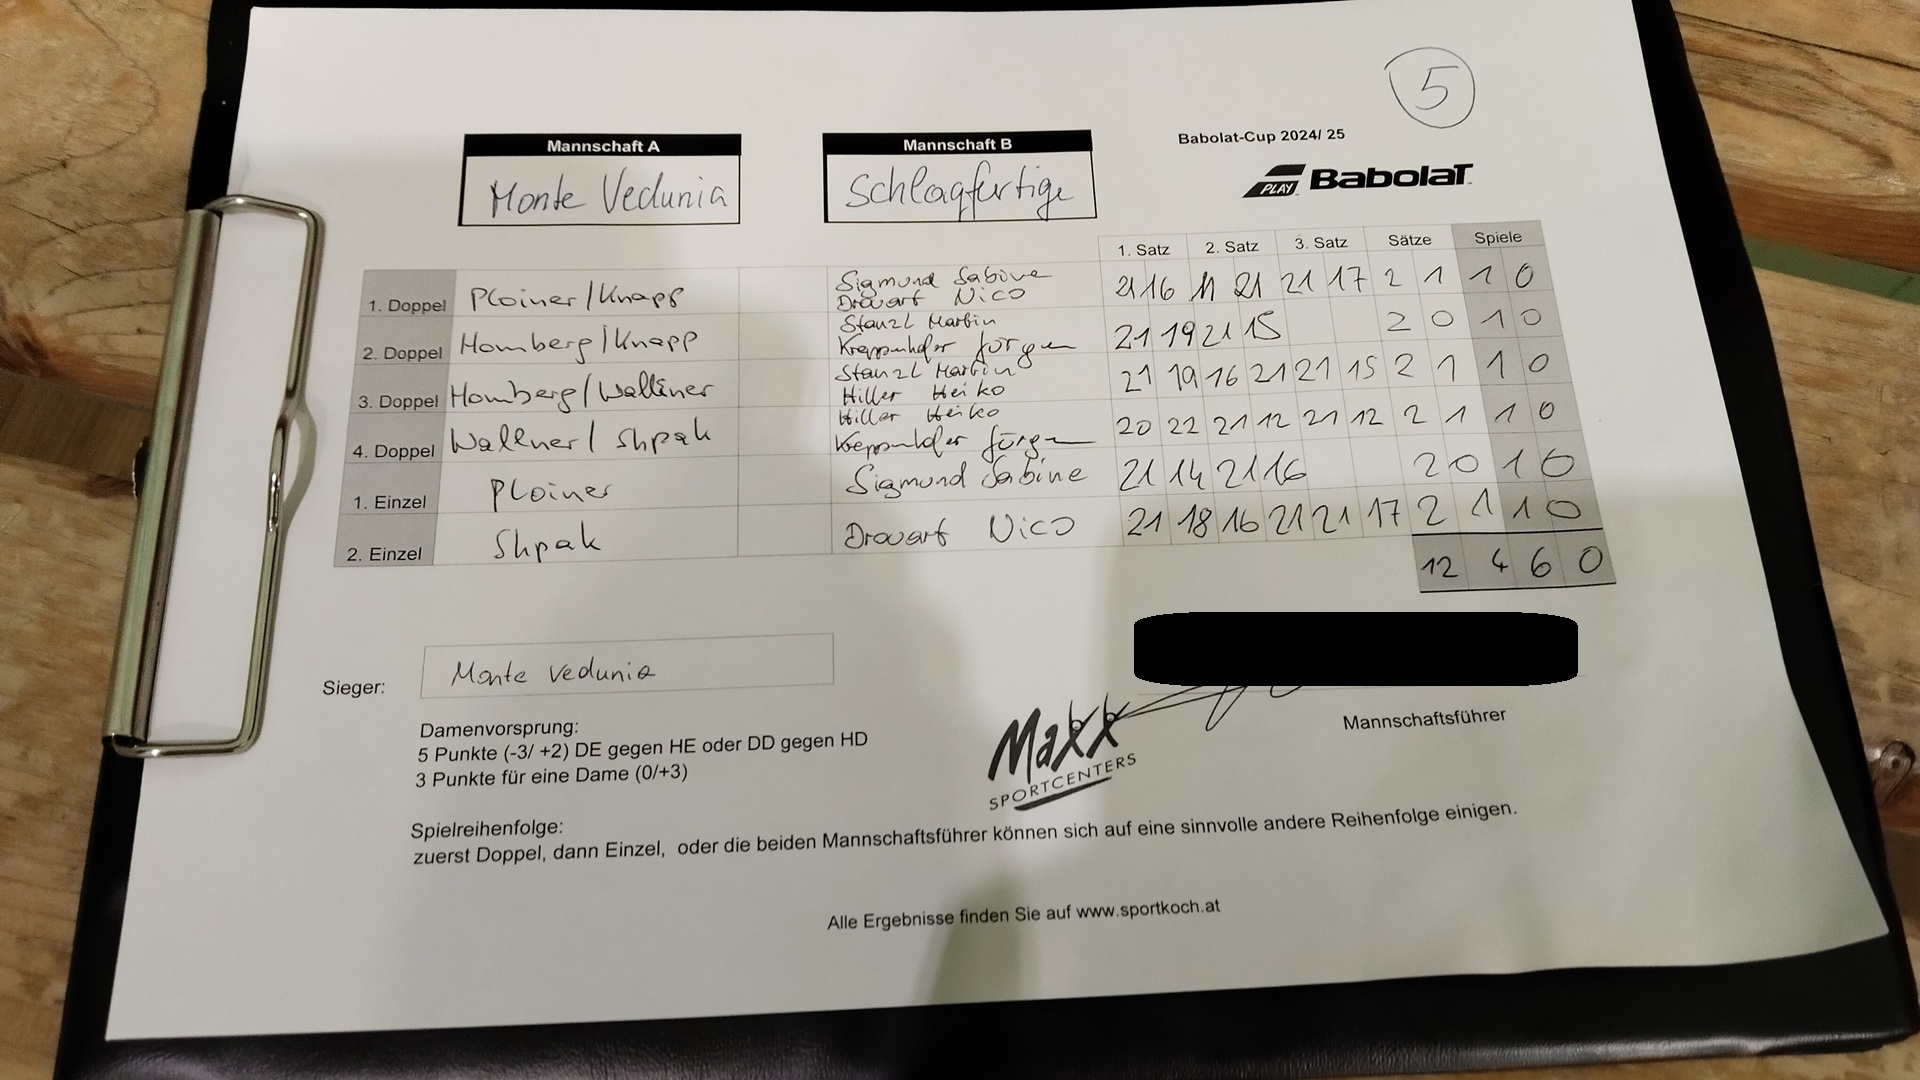 5
Babolat-Cup 2024/ 25
PLAY BabolaT
Mannschaft A
Monte Vedunia
Mannschaft B
Schlagfertige
1. Satz 2. Satz 3. Satz Sätze Spiele
1. Doppel Ploiner/Knapp Sigmund Sabine 21 16 11 21 21 17 2 1 1 0
Drouart Nico
2. Doppel Homberg/Knapp Stanzl Martin 21 19 21 15 2 0 1 0
Kreppenhofer Jürgen
3. Doppel Homberg/Wallner Stanzl Martin 21 19 16 21 21 15 2 1 1 0
Hiller Heiko
4. Doppel Wallner/Shpak Hiller Heiko 20 22 21 12 21 12 2 1 1 0
Kreppenhofer Jürgen
1. Einzel Ploiner Sigmund Sabine 21 14 21 16 2 0 1 0
2. Einzel Shpak Drouart Nico 21 18 16 21 21 17 2 1 1 0
12 4 6 0
Sieger: Monte Vedunia
Mannschaftsführer
Maxx
SPORTCENTERS
Damenvorsprung:
5 Punkte (-3/ +2) DE gegen HE oder DD gegen HD
3 Punkte für eine Dame (0/+3)
Spielreihenfolge:
zuerst Doppel, dann Einzel, oder die beiden Mannschaftsführer können sich auf eine sinnvolle andere Reihenfolge einigen.
Alle Ergebnisse finden Sie auf www.sportkoch.at